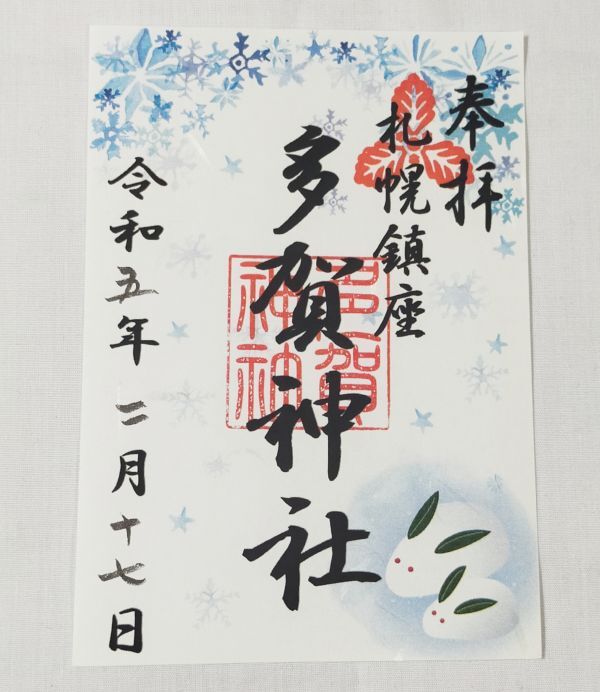 奉拝
札幌鎮座
多賀神社
多賀
神社
令和五年二月十七日